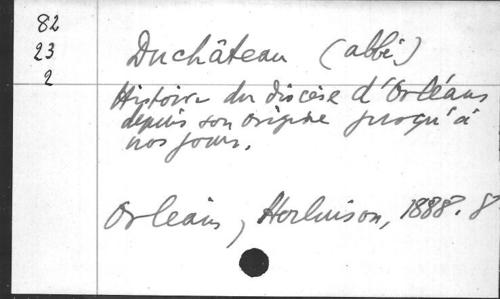 82
23
2
Duchâteau (abbé)
Histoire du diocèse d'Orléans
depuis son origine jusqu'à
nos jours.
Orléans, Herluison, 1888. 8